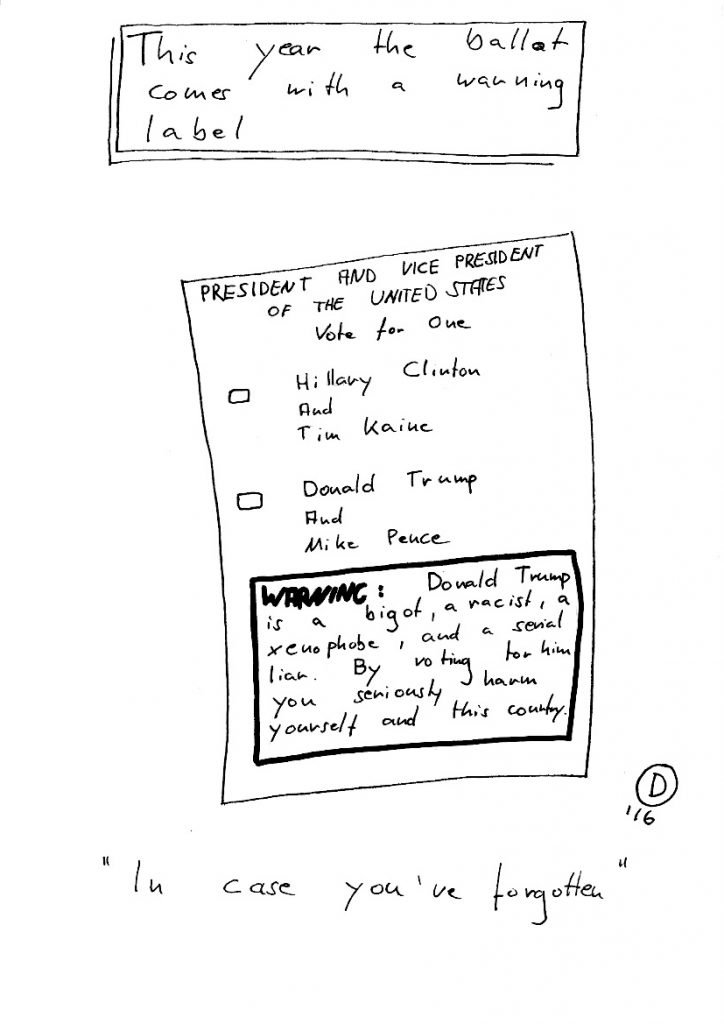 This year the ballot
comes with a warning
label
PRESIDENT AND VICE PRESIDENT
OF THE UNITED STATES
Vote for One
Hillary Clinton
And
Tim Kaine
Donald Trump
And
Mike Pence
WARNING: Donald Trump
is a bigot, a racist, a
xenophobe, and a serial
liar. By voting for him
you seriously harm
yourself and this country.
D
'16
"In case you've forgotten"